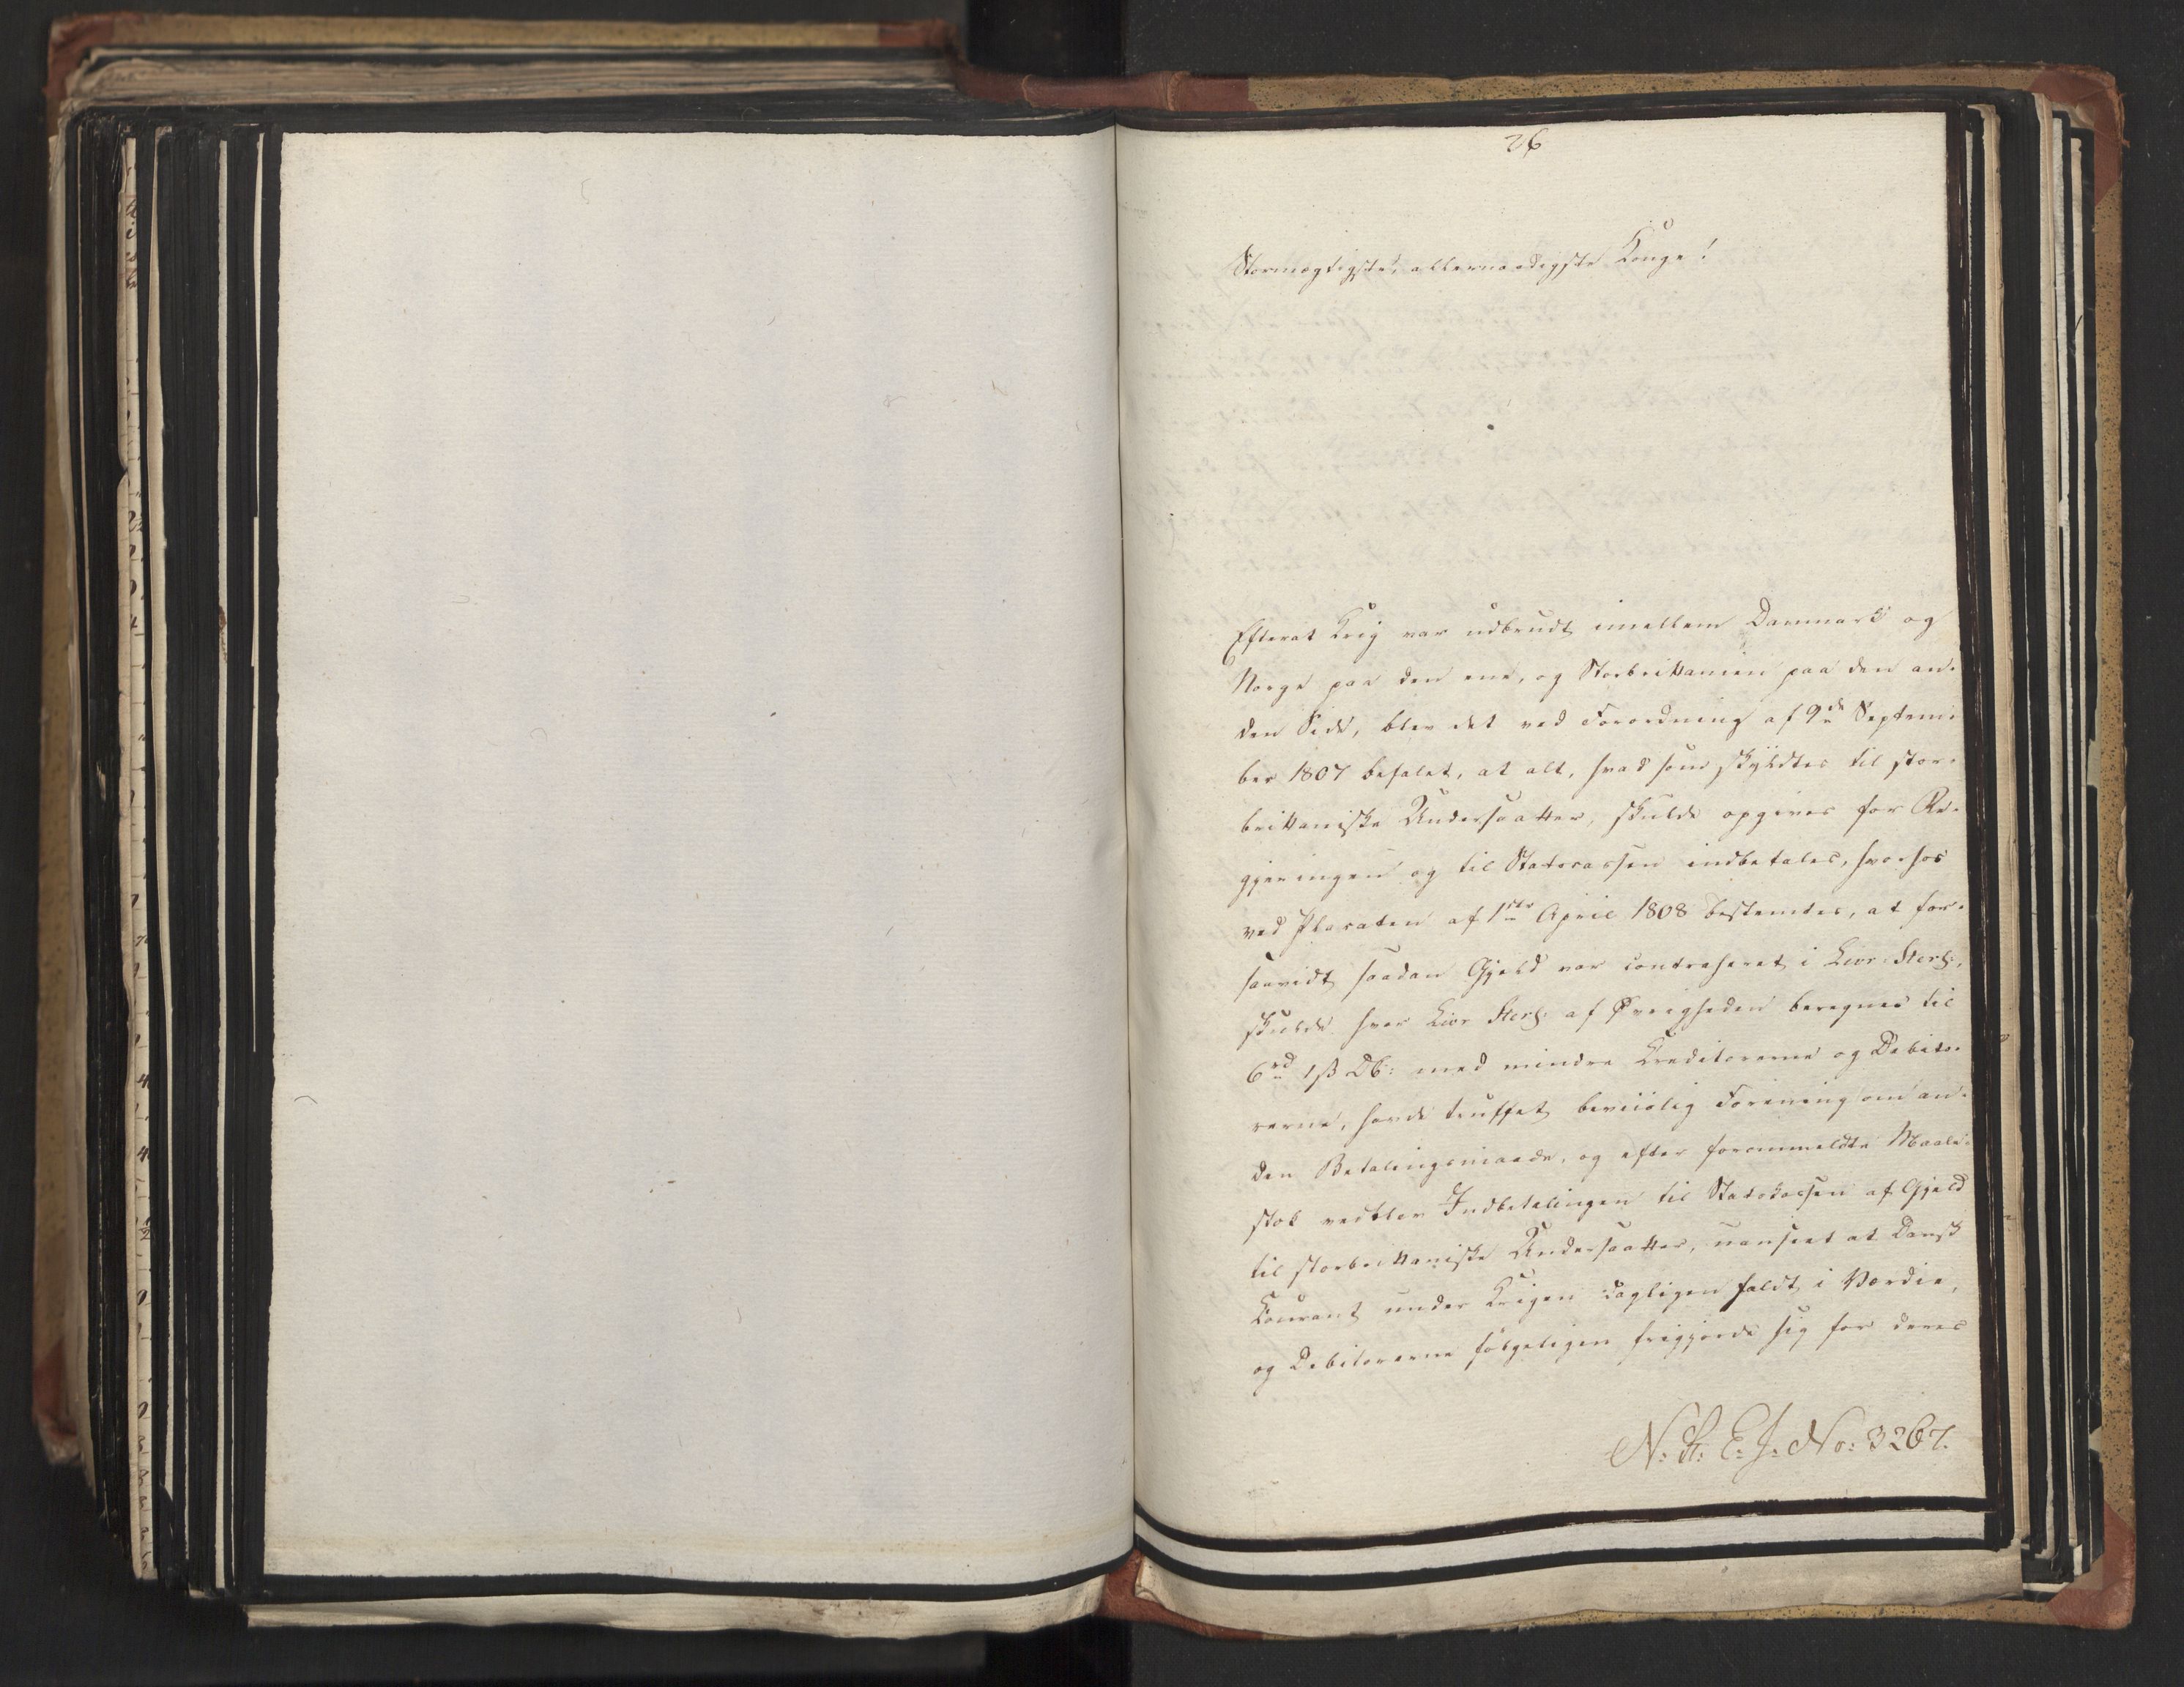 26
Stormægtigste, allernaadigste Konge!
Efterat Krig var udbrudt imellem Danmark og
Norge paa den ene, og Storbrittanien paa den an-
den Side, blev det ved Forordning af 9de Septem-
ber 1807 befalet, at alt, hvad som skyldtes til stor-
brittaniske Undersaatter, skulde opgives for Re-
gjeringen og til Statscassen indbetales, hvorhos
ved Placaten af 1ste April 1808 bestemtes, at for-
saavidt saadan Gjeld var contraheret i Livr: Sterl:,
skulde hver Livr Sterl: af Øvrigheden beregnes til
6rd 1ß DC: med mindre Creditorerne og Debito-
rerne, havde truffet beviislig Forening om an-
den Betalingsmaade, og efter forommeldte Maale-
stok vedblev Indbetalingen til Statskassen af Gjeld
til storbrittaniske Undersaatter, uanseet at Dansk
Courant under Krigen dagligen faldt i Værdie,
og Debitorerne følgeligen frigjorde sig for deres
N: R: C: J: No: 3267.